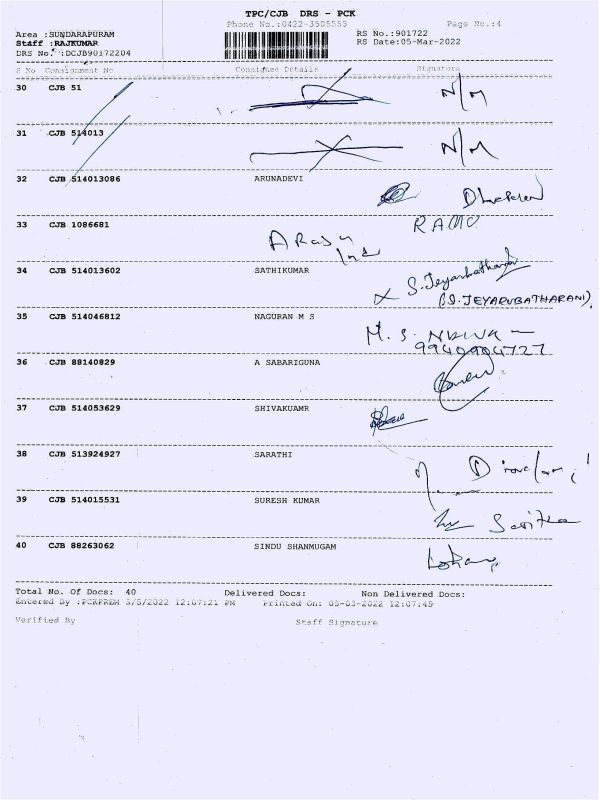 TPC/CJB DRS - PCK
Phone No.:0422-3505555 Page No.:4
Area :SUNDARAPURAM RS No.:901722
Staff :RAJKUMAR RS Date:05-Mar-2022
DRS No. :DCJB90172204
S No Consignment No Consigned Details Signature
30 CJB 51 N/M
31 CJB 514013 N/M
32 CJB 514013086 ARUNADEVI
33 CJB 1086681
34 CJB 514013602 SATHIKUMAR S.Jeyarubatharani
(S.JEYARUBATHARANI).
35 CJB 514046812 NAGURAN M S M. S.
9940904727
36 CJB 88140829 A SABARIGUNA
37 CJB 514053629 SHIVAKUAMR
38 CJB 513924927 SARATHI
39 CJB 514015531 SURESH KUMAR
40 CJB 88263062 SINDU SHANMUGAM
Total No. Of Docs: 40 Delivered Docs: Non Delivered Docs:
Entered By :PCKPREM 3/5/2022 12:07:21 PM Printed On: 05-03-2022 12:07:45
Verified By Staff Signature